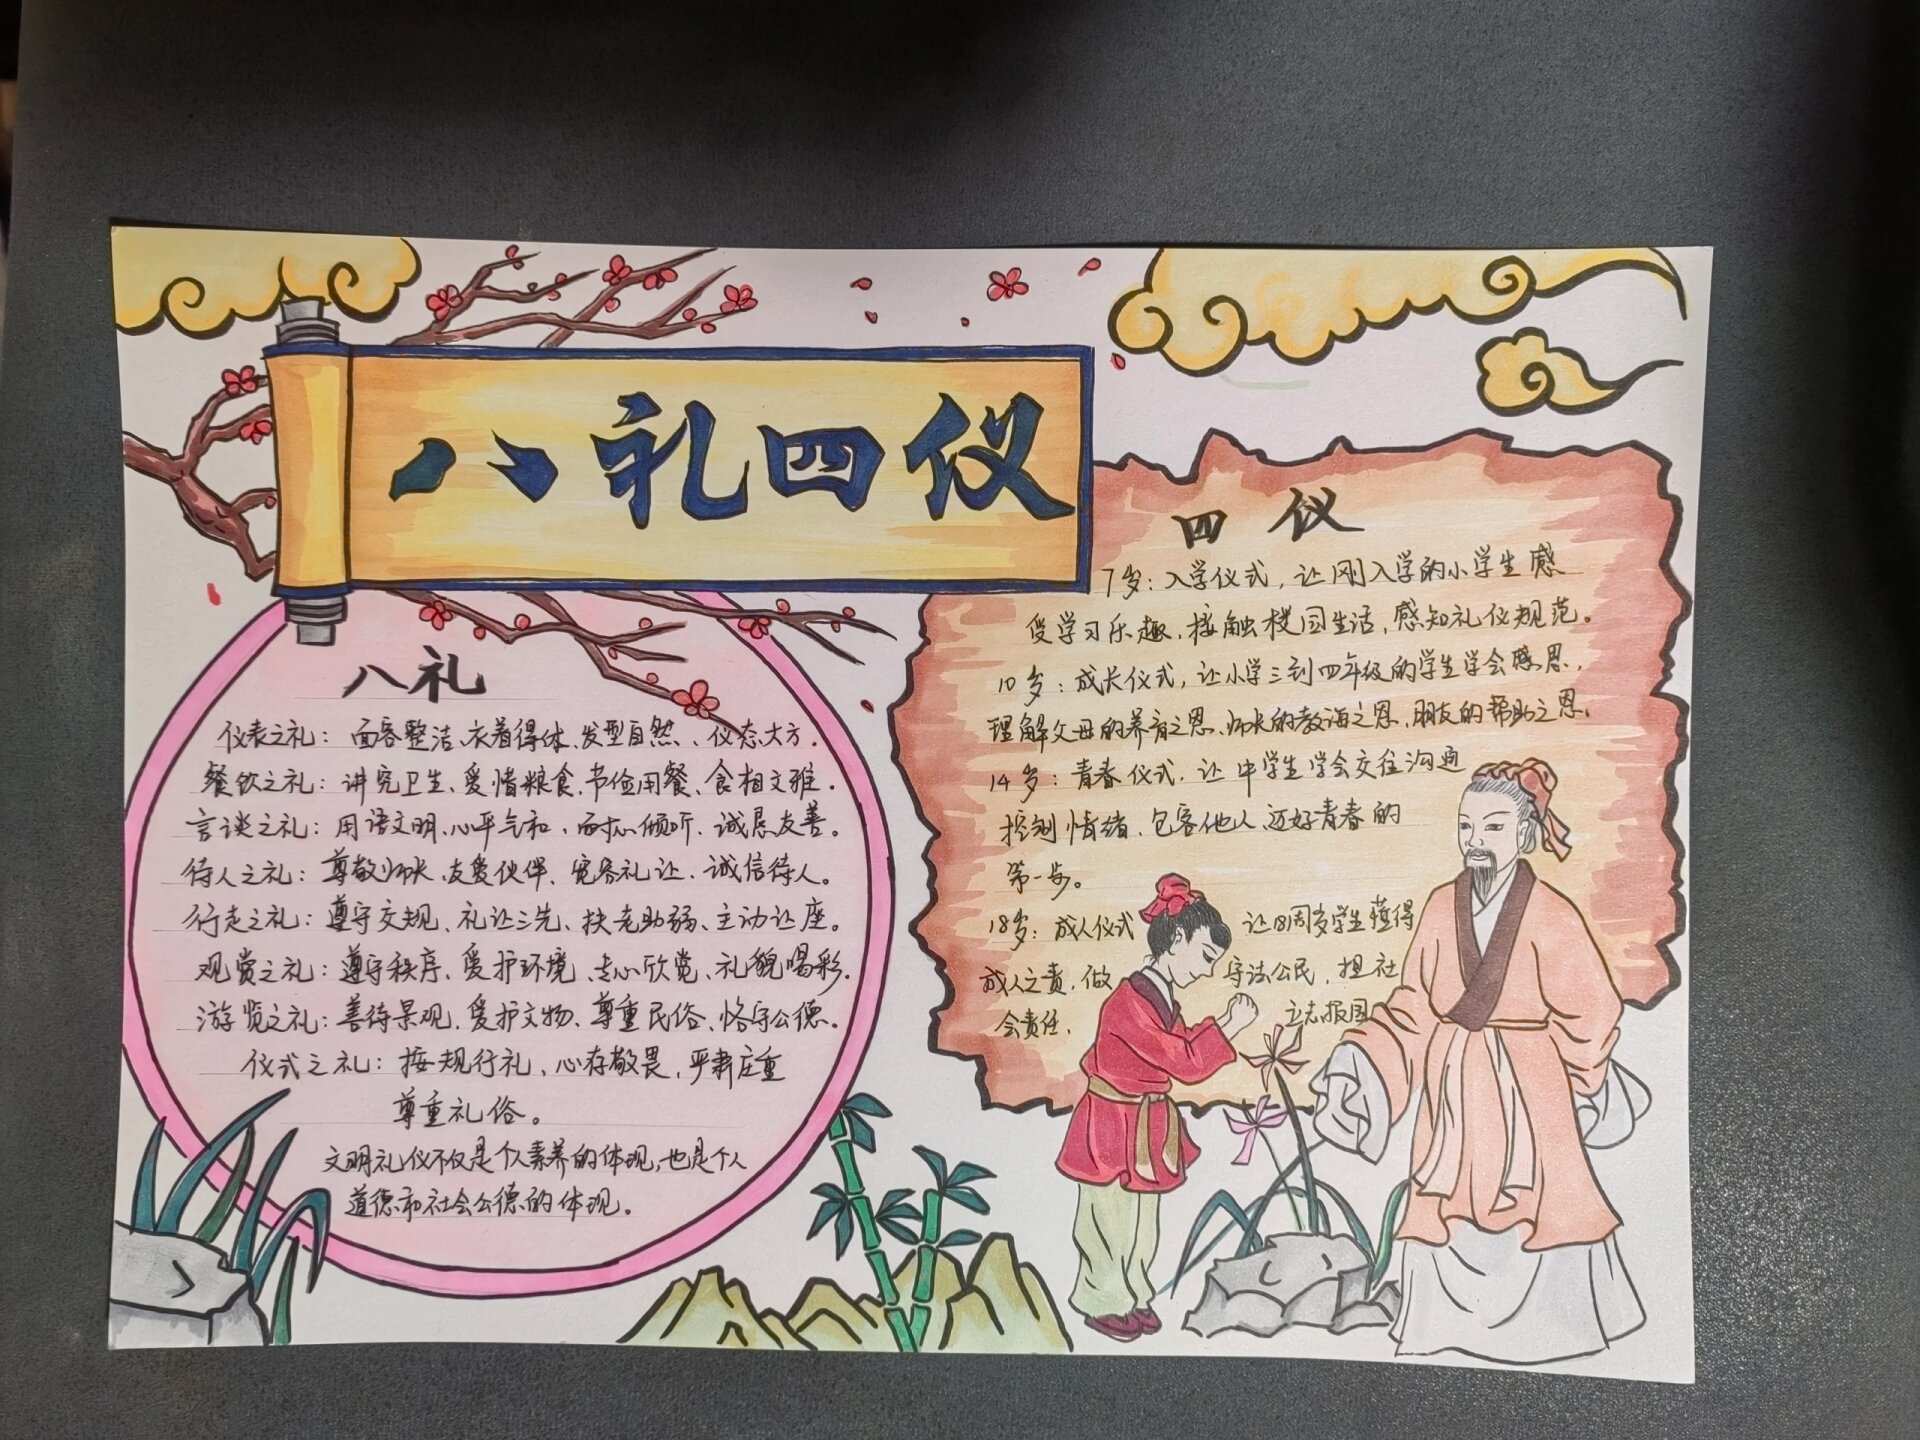 八礼四仪
八礼
仪表之礼：面容整洁、衣着得体、发型自然、仪态大方.
餐饮之礼：讲究卫生、爱惜粮食、节俭用餐、食相文雅.
言谈之礼：用语文明、心平气和、耐心倾听、诚恳友善。
待人之礼：尊敬师长、友爱伙伴、宽容礼让、诚信待人。
行走之礼：遵守交规、礼让三先、扶老助弱、主动让座。
观赏之礼：遵守秩序、爱护环境、专心欣赏、礼貌喝彩.
游览之礼：善待景观、爱护文物、尊重民俗、恪守公德。
仪式之礼：按规行礼、心存敬畏，严肃庄重
尊重礼俗。
文明礼仪不仅是个人素养的体现，也是个人
道德和社会公德的体现。
四仪
7岁：入学仪式，让刚入学的小学生感
受学习乐趣，接触校园生活，感知礼仪规范。
10岁：成长仪式，让小学三到四年级的学生学会感恩，
理解父母的养育之恩、师长的教诲之恩、朋友的帮助之恩，
14岁：青春仪式，让中学生学会交往沟通
控制情绪、包容他人、迈好青春的
第一步。
18岁：成人仪式 让18周岁学生懂得
成人之责，做 守法公民，担社
会责任， 立志报国